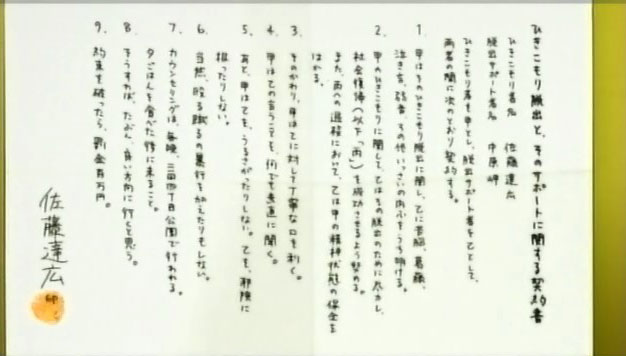 ひきこもり脱出と、そのサポートに関する契約書
ひきこもり者名　佐藤達広
脱出サポート者名　中原岬
ひきこもり者を甲とし、脱出サポート者を乙として、
両者の間に次のとおり契約する。
1. 甲はそのひきこもり脱出に関し、乙に苦悩、葛藤、
泣き言、弱音、その他いっさいの内心をうち明ける。
2. 甲のひきこもりに関して、乙はその脱出のために尽力し、
社会復帰(以下「丙」)を成功させるよう努める。
また、丙への過程において、乙は甲の精神状態の保全を
はかる。
3. そのかわり、甲は乙に対して丁寧な口を利く。
4. 甲は乙の言うことを、何でも素直に聞く。
5. あと、甲は乙を、うるさがったりしない。乙を、邪険に
扱ったりしない。
6. 当然、殴る蹴るの暴行を加えたりもしない。
7. カウンセリングは、毎晩、三田四丁目公園で行われる。
夕ごはんを食べた後に来ること。
8. そうすれば、たぶん、良い方向に行くと思う。
9. 約束を破ったら、罰金百万円。
佐藤達広